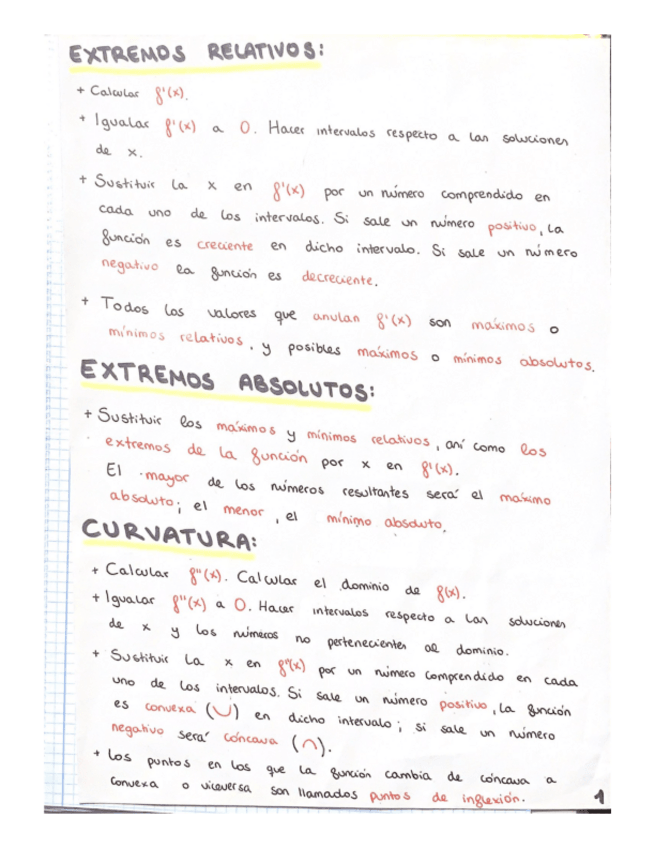 EXTREMOS RELATIVOS:
+ Calcular f'(x).
+ Igualar f'(x) a 0. Hacer intervalos respecto a las soluciones
de x.
+ Sustituir la x en f'(x) por un número comprendido en
cada uno de los intervalos. Si sale un número positivo, la
función es creciente en dicho intervalo. Si sale un número
negativo la función es decreciente.
+ Todos los valores que anulan f'(x) son máximos o
mínimos relativos, y posibles máximos o mínimos absolutos.
EXTREMOS ABSOLUTOS:
+ Sustituir los máximos y mínimos relativos, así como los
extremos de la función por x en f'(x).
El mayor de los números resultantes será el máximo
absoluto; el menor, el mínimo absoluto.
CURVATURA:
+ Calcular f''(x). Calcular el dominio de f(x).
+ Igualar f''(x) a 0. Hacer intervalos respecto a las soluciones
de x y los números no pertenecientes al dominio.
+ Sustituir la x en f''(x) por un número comprendido en cada
uno de los intervalos. Si sale un número positivo, la función
es convexa (∪) en dicho intervalo; si sale un número
negativo será cóncava (∩).
+ Los puntos en los que la función cambia de cóncava a
convexa o viceversa son llamados puntos de inflexión.
1